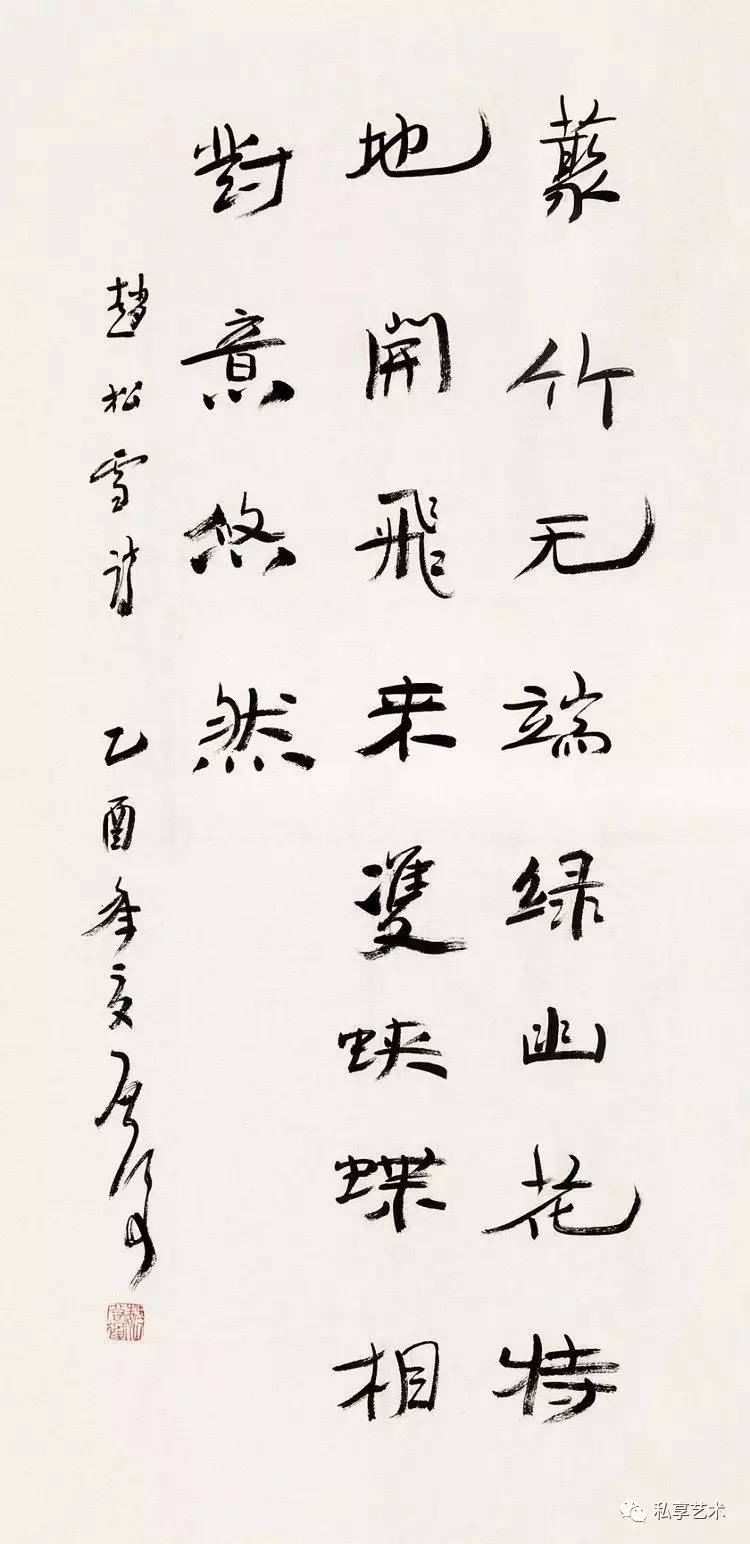 藂竹无端绿幽花特
地開飛来雙蛱蝶相
對意悠然
趙松雪詩 乙酉年夏
私享艺术